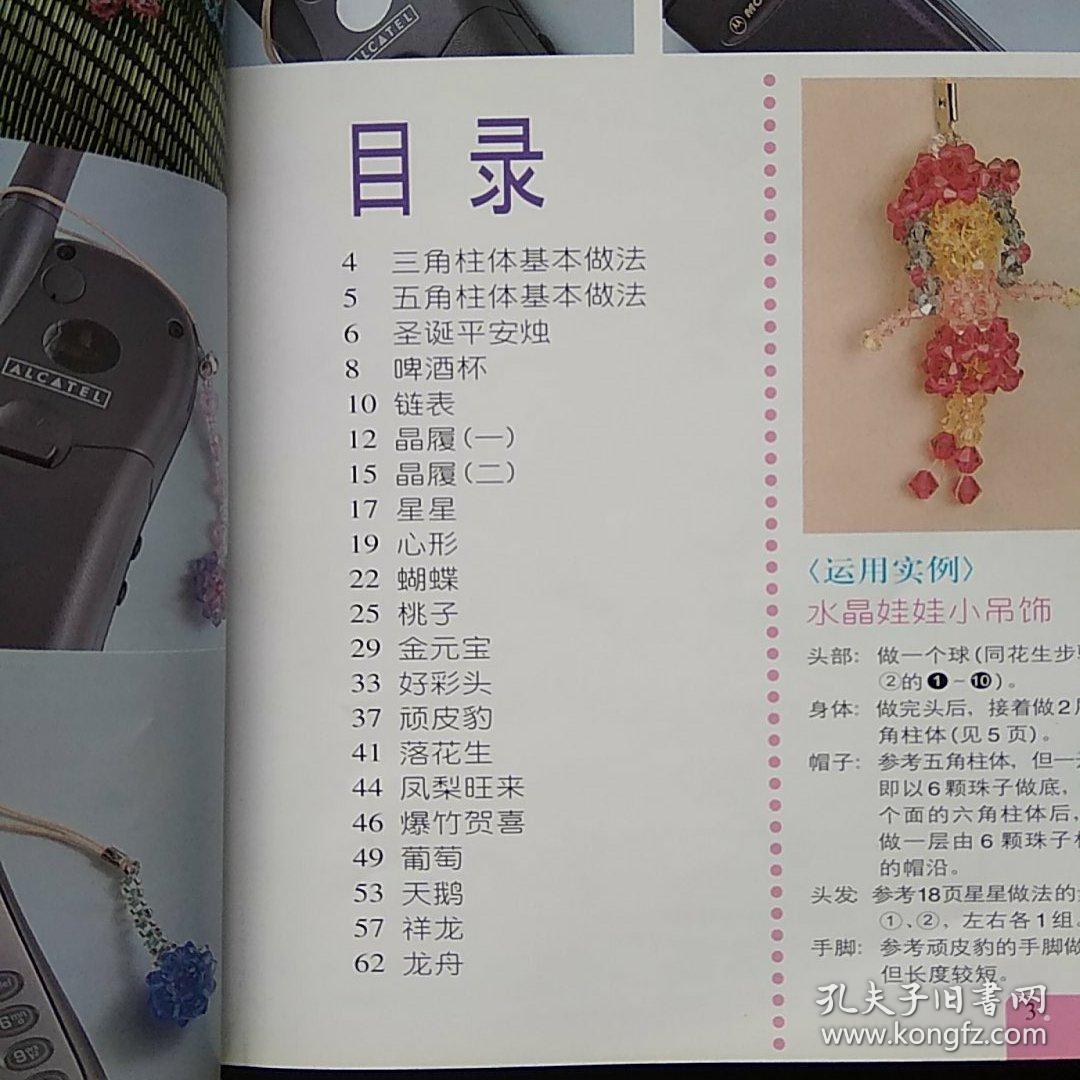 ALCATEL
ALCATEL
目录
4 三角柱体基本做法
5 五角柱体基本做法
6 圣诞平安烛
8 啤酒杯
10 链表
12 晶履(一)
15 晶履(二)
17 星星
19 心形
22 蝴蝶
25 桃子
29 金元宝
33 好彩头
37 顽皮豹
41 落花生
44 凤梨旺来
46 爆竹贺喜
49 葡萄
53 天鹅
57 祥龙
62 龙舟
〈运用实例〉
水晶娃娃小吊饰
头部: 做一个球(同花生步
②的❶~❿)。
身体: 做完头后, 接着做2
角柱体(见5页)。
帽子: 参考五角柱体, 但一
即以6颗珠子做底,
个面的六角柱体后,
做一层由6颗珠子
的帽沿。
头发: 参考18页星星做法的
①、②, 左右各1组。
手脚: 参考顽皮豹的手脚做
但长度较短。
3
孔夫子旧书网
www.kongfz.com